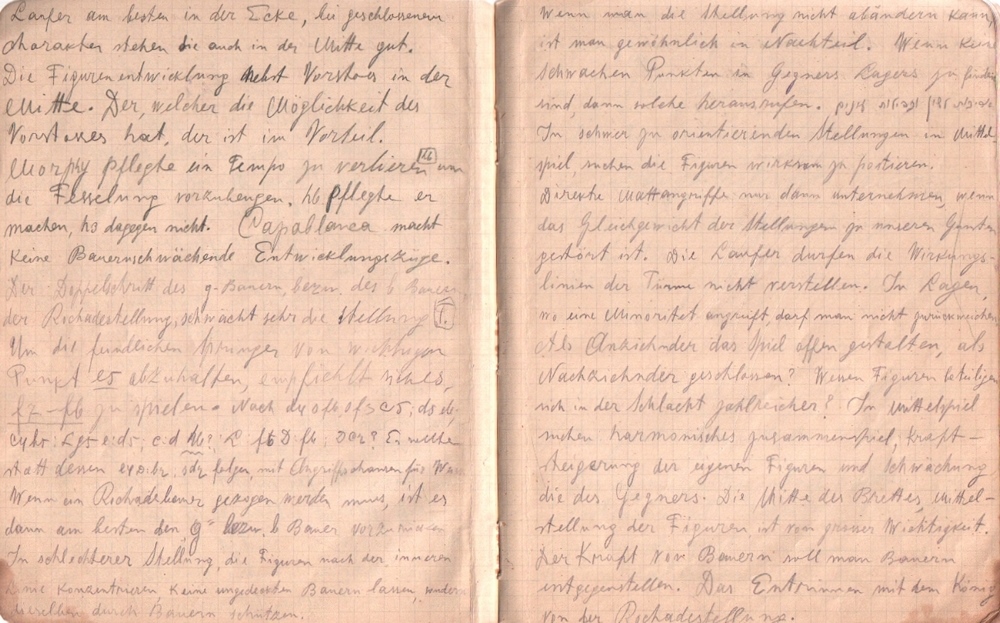 Laufer am besten in der Ecke, bei geschlossenem
charakter stehen sie auch in der Mitte gut.
Die Figurenentwicklung nebst Vorstoss in der
Mitte. Der, welcher die Möglichkeit des
Vorstosses hat, der ist im Vorteil.
Morphy pflegte ein Tempo zu verlieren um
die Fesselung vorzubeugen. h6 pflegte er
machen, h3 dagegen nicht. Capablanca macht
keine Bauernschwächende Entwicklungszüge.
Der Doppelschritt des g-Bauern, bezw. des b Bauern
der Rochadestellung, schwächt sehr die Stellung
Um die feindlichen Springer vom wichtigen
Punkt e5 abzuhalten, empfiehlt sich es,
f7-f6 zu spielen. Nach
statt dessen folgen, mit Angriffschancen für
Wenn ein Rochadebauer gezogen werden muss, ist es
dann am besten den g bezw. b Bauer
In schlechterer Stellung, die Figuren nach der inneren
Linie konzentrieren, keine ungedeckten Bauern lassen, sondern
dieselben durch Bauern schützen.
Wenn man die Stellung nicht abändern kann
ist man gewöhnlich in Nachteil. Wenn kein
schwachen Punkten in Gegners Lagers zu finden
sind, dann solche herausrufen.
In schwer zu orientierenden Stellungen im Mittel
spiel, suchen die Figuren wirksam zu postieren.
Direkte Mattangriffe nur dann unternehmen, wenn
das Gleichgewicht der Stellungen zu unseren Gunsten
gestört ist. Die Laufer dürfen die Wirkungs-
linien der Türme nicht verstellen. In Lagen,
wo eine Minorität angreift, darf man nicht zurückweichen
Als Anziehnder das Spiel offen gestalten, als
Nachziehnder geschlossen? Wessen Figuren beteiligen
sich in der Schlacht zahlreicher? In Mittelspiel
suchen harmonisches zusammenspiel, Kraft-
steigerung der eigenen Figuren und Schwächung
die des Gegners. Die Mitte des Brettes, Mittel-
stellung der Figuren ist von grosser Wichtigkeit.
Der Kraft von Bauern soll man Bauern
entgegenstellen. Das Entrinnen mit dem König
von der Rochadestellung.